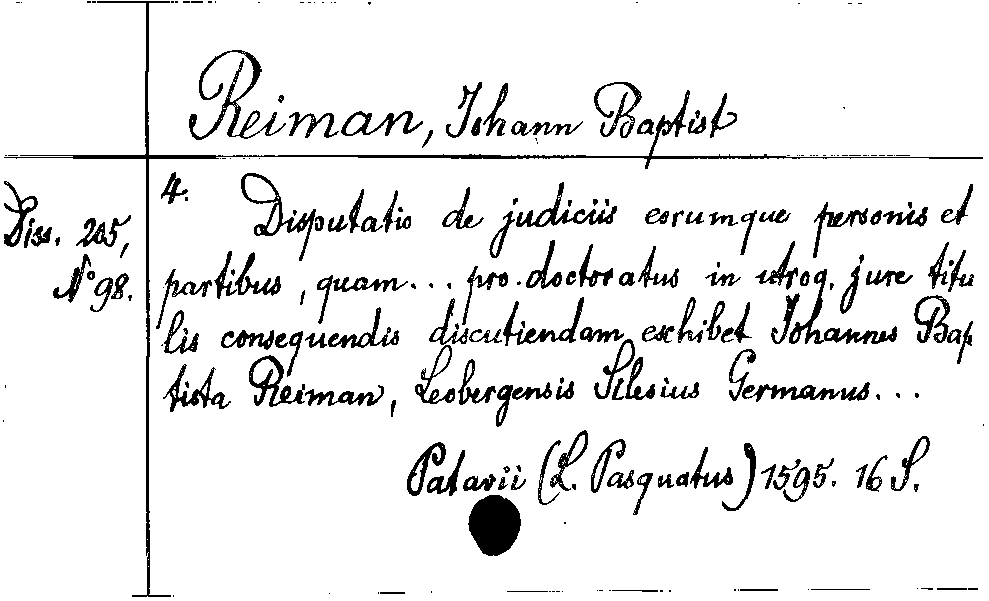 Reiman, Johann Baptist
Diss. 205,
N° 98.
4. Disputatio de judiciis eorumque personis et
partibus, quam... pro doctoratus in utroq. jure titu
lis consequendis discutiendam exhibet Johannes Bap
tista Reiman, Leobergensis Silesius Germanus...
Patavii (L. Pasquatus) 1595. 16 S.